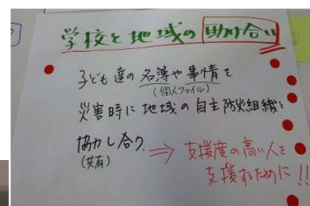 学校と地域の助け合い
子ども達の名簿や事情を
(個人ファイル)
災害時に地域の自主防災組織と
協力し合う
(共有)
⇒ 支援度の高い人を
支援するために!!